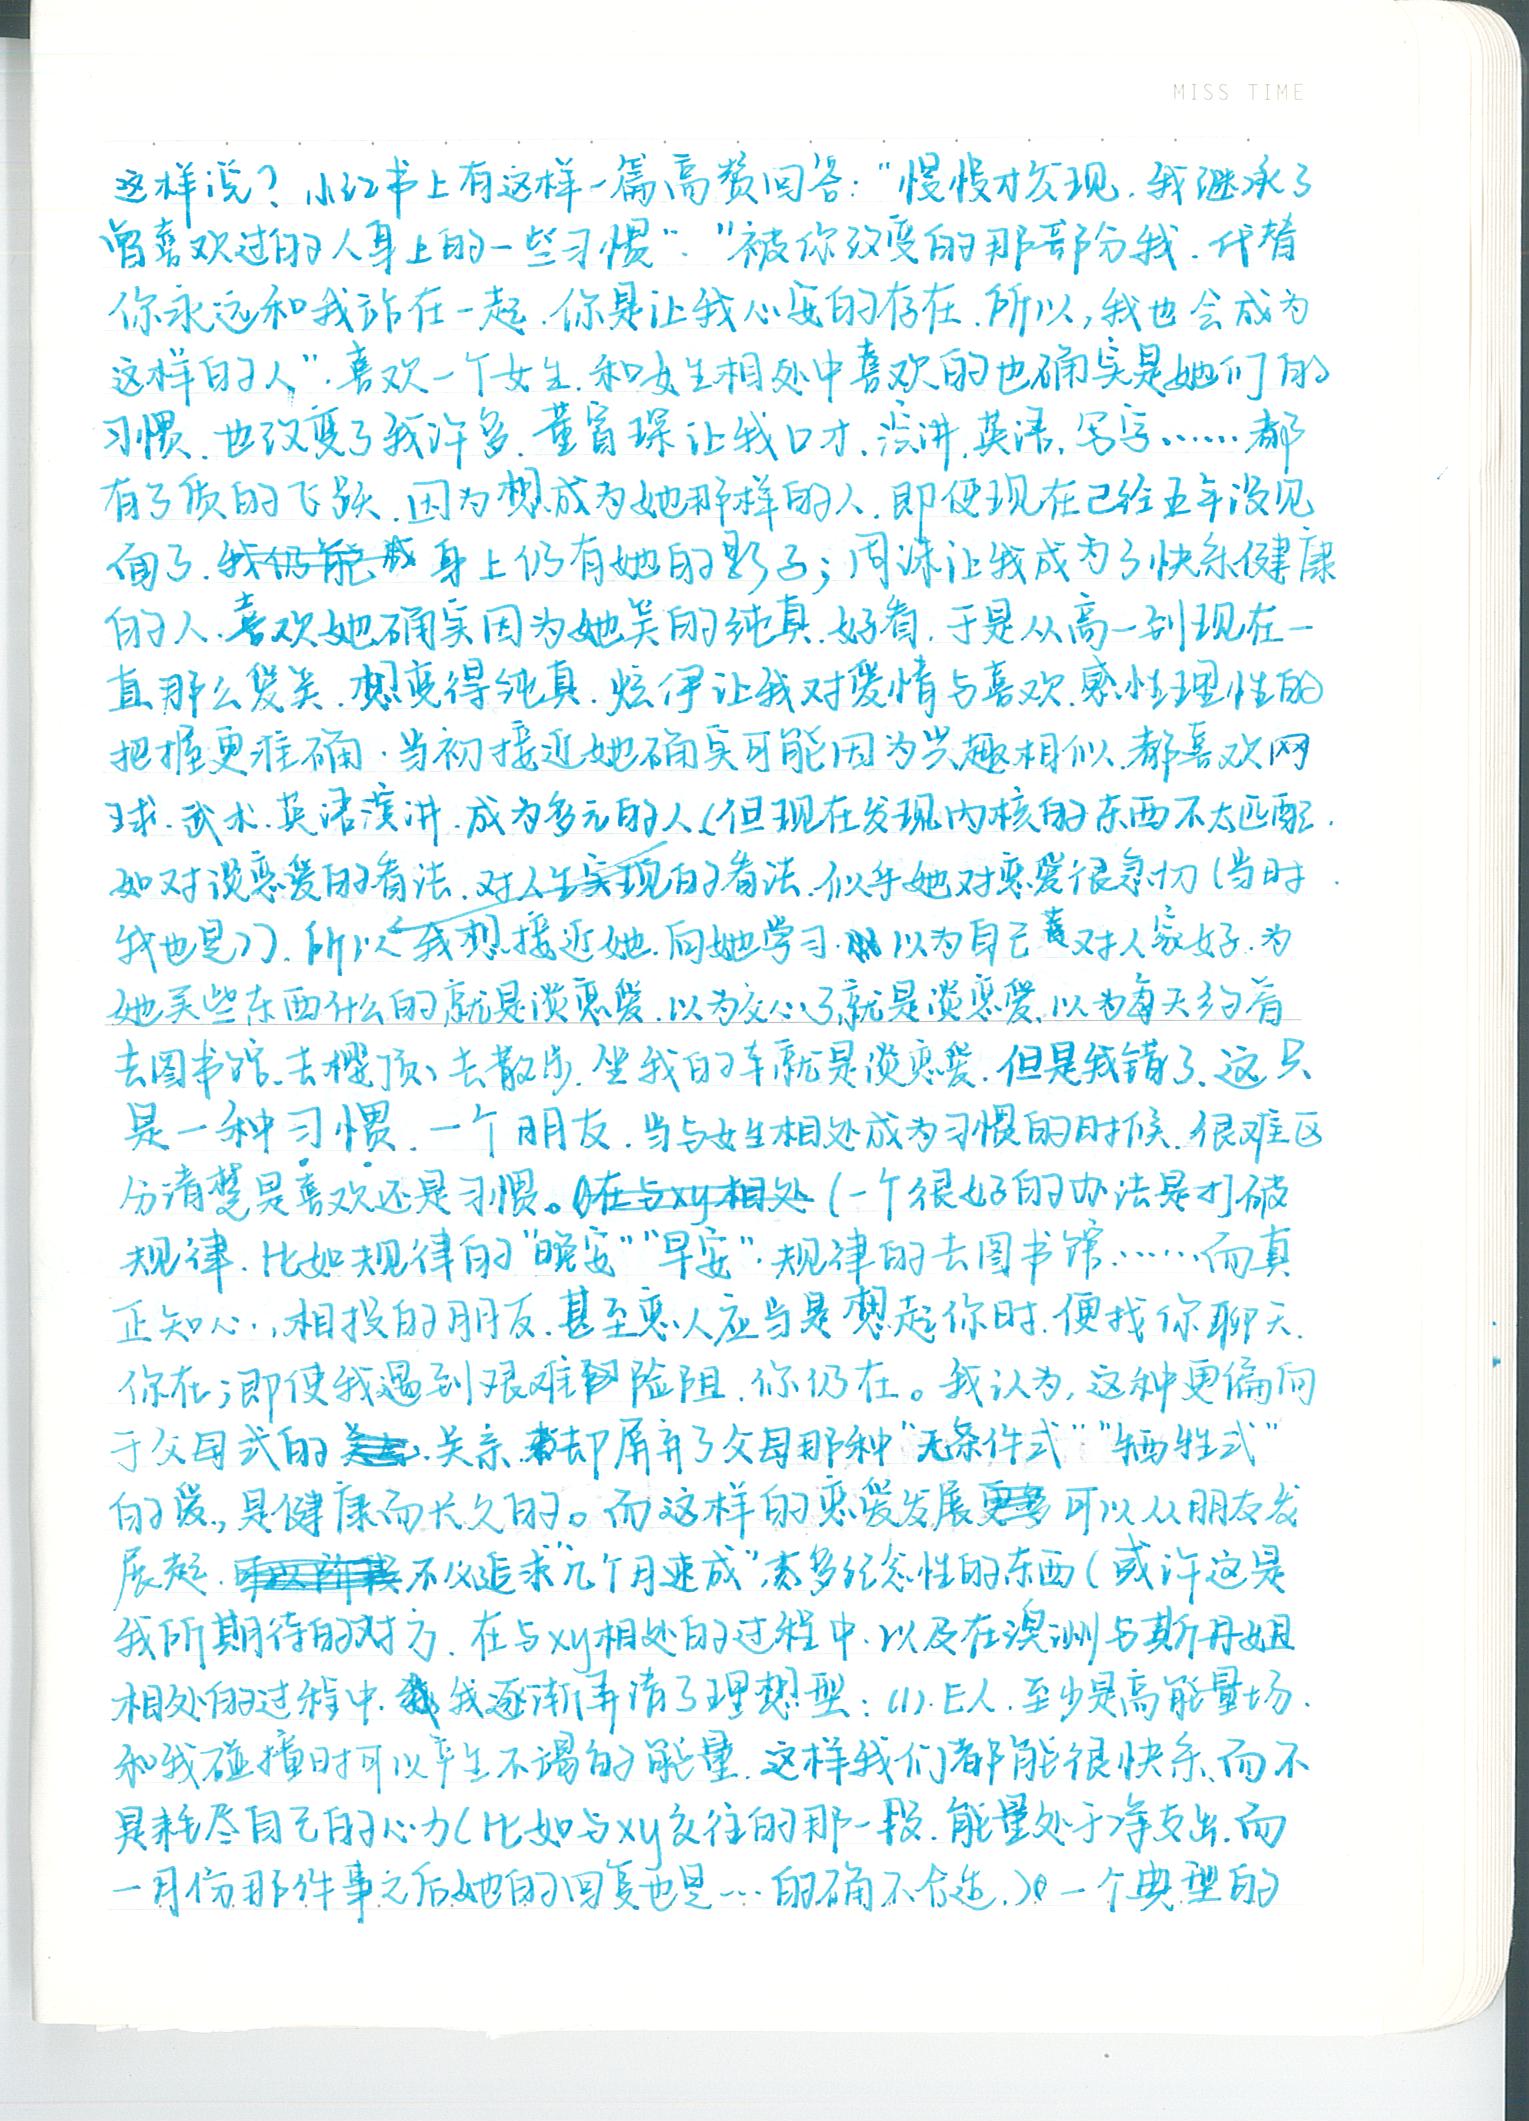 MISS TIME
这样说？小红书上有这样一篇高赞回答：“慢慢才发现，我继承了
曾喜欢过的人身上的一些习惯”.“被你改变的那部分我，代替
你永远和我站在一起.你是让我心安的存在.所以,我也会成为
这样的人”.喜欢一个女生.和女生相处中喜欢的也确实是她们的
习惯.也改变了我许多.董宥琛让我口才、演讲、英语、写字……都
有了质的飞跃.因为想成为她那样的人.即便现在已经五年没见
面了.我仍能成身上仍有她的影子;周洙让我成为了快乐健康
的人.喜欢她确实因为她笑的纯真.好看.于是从高一到现在一
直那么爱笑.想变得纯真.炫伊让我对爱情与喜欢.感性理性的
把握更准确.当初接近她确实可能因为兴趣相似.都喜欢网
球.武术.英语演讲.成为多元的人(但现在发现内核的东西不太匹配.
如对谈恋爱的看法.对人生实现的看法.似乎她对恋爱很急切(当时
我也是)).所以我想接近她.向她学习.以为自己对人家好.为
她买些东西什么的就是谈恋爱.以为交心了就是谈恋爱、以为每天约着
去图书馆、去樱顶、去散步.坐我的车就是谈恋爱.但是我错了、这只
是一种习惯.一个朋友.当与女生相处成为习惯的时候.很难区
分清楚是喜欢还是习惯。在与xy相处(一个很好的办法是打破
规律.比如规律的“晚安”“早安”.规律的去图书馆……而真
正知心.相投的朋友.甚至恋人应当是想起你时.便找你聊天.
你在;即使我遇到艰难险阻.你仍在。我认为,这种更偏向
于父母式的关系.却屏弃了父母那种“无条件式”“牺牲式”
的爱.,是健康而长久的。而这样的恋爱发展更多可以从朋友发
展起.不必追求“几个月速成”.太多纪念性的东西(或许这是
我所期待的对方.在与xy相处的过程中.以及在澳洲与斯丹妲
相处的过程中.我逐渐弄清了理想型：(1).E人.至少是高能量场.
和我碰撞时可以产生不竭的能量.这样我们都能很快乐、而不
是耗尽自己的心力(比如与xy交往的那一段.能量处于净支出.而
一月份那件事之后她的回复也是…的确不合适.)一个典型的